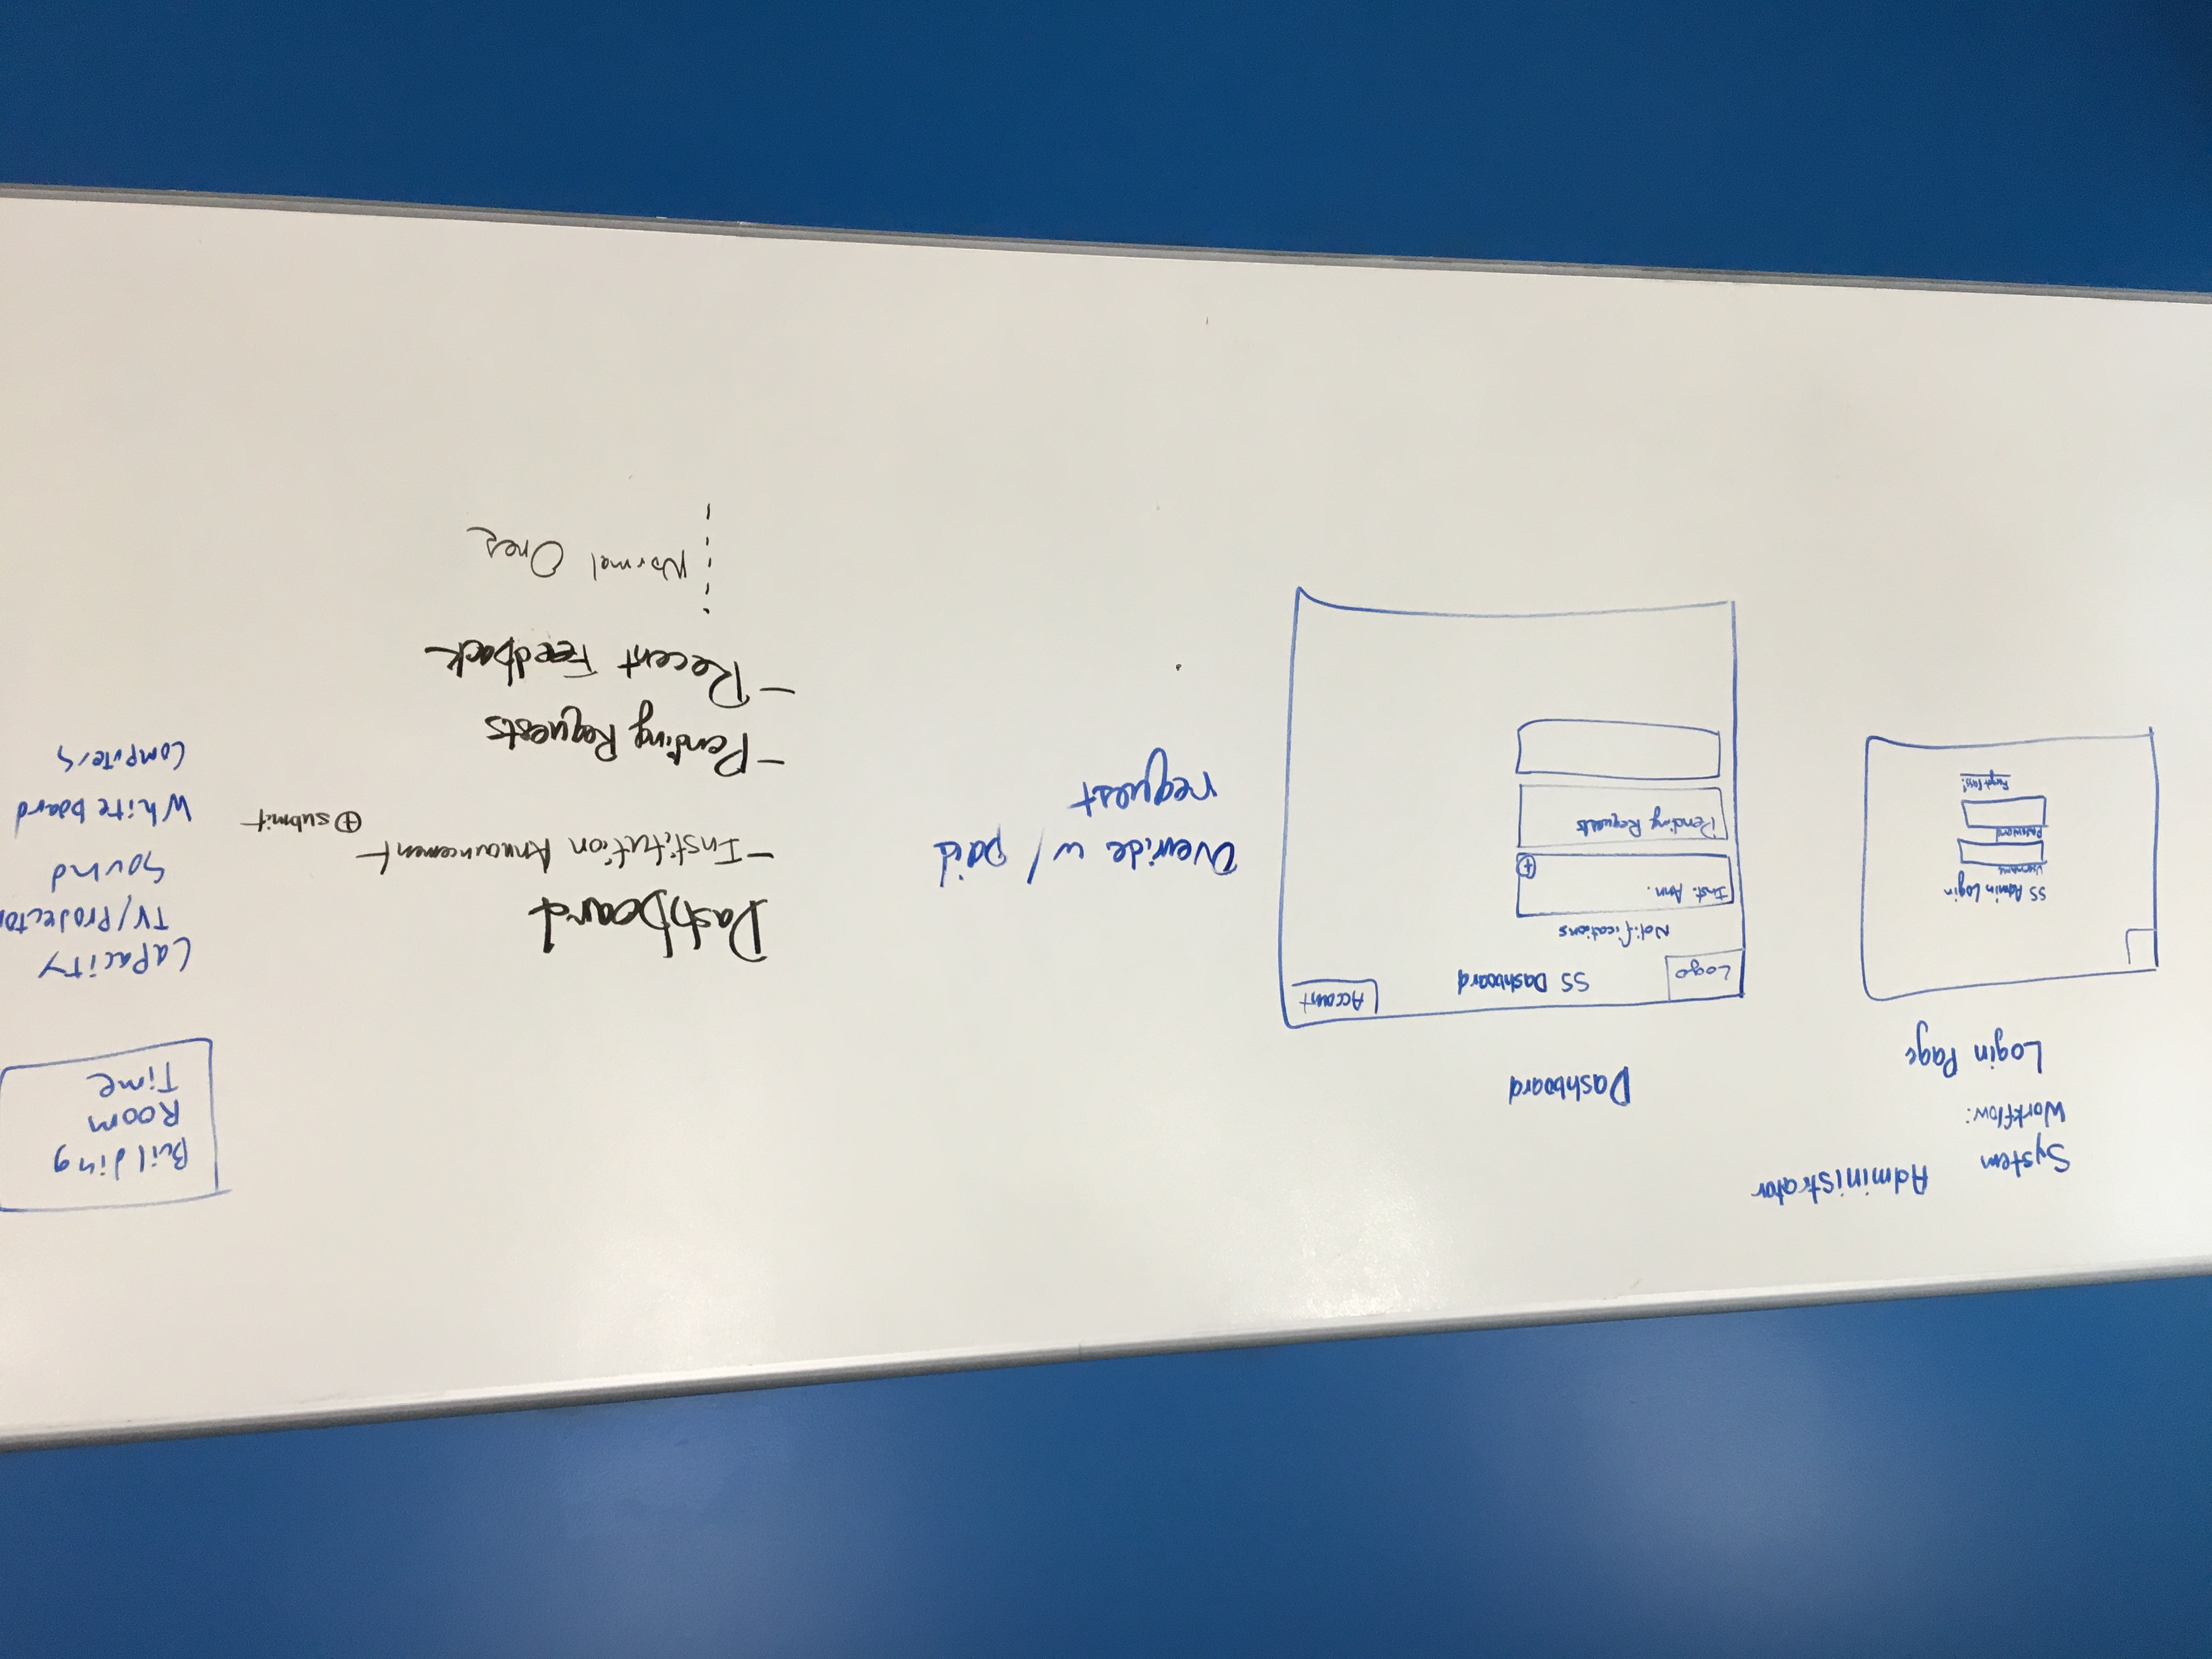 System Administrator
Workflow:
Login Page
SS Admin Login
Username
Password
Forgot Pass?
Dashboard
Logo
SS Dashboard
Account
Notifications
Inst. Ann.
Pending Requests
Override w/ paid
request
Dashboard
- Institution Announcement
⊕ submit
- Pending Requests
- Recent Feedback
Normal Ones
Building
Room
Time
Capacity
TV/Projector
Sound
Whiteboard
Computers